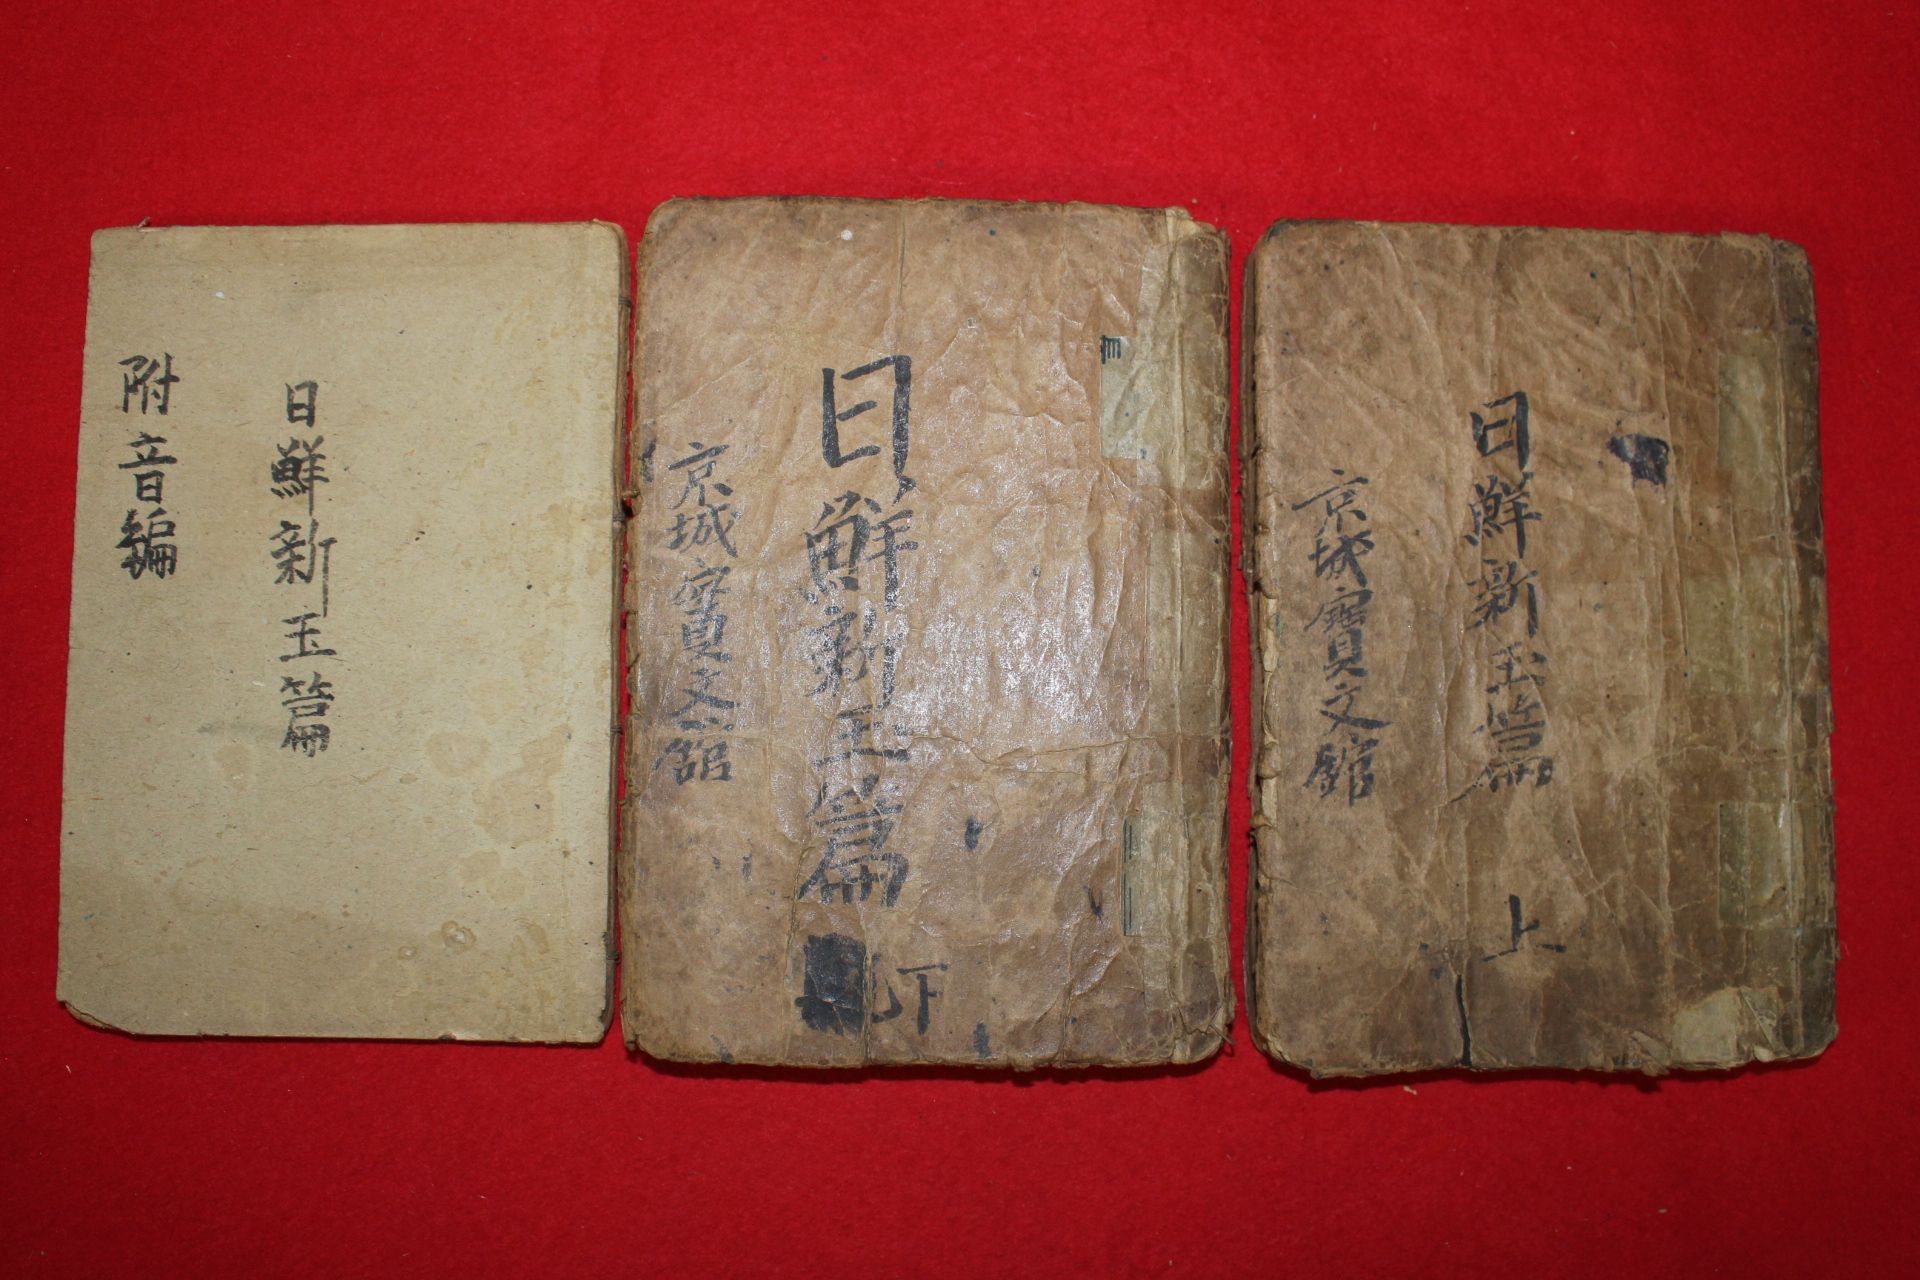 日鮮新玉篇
上
京城寶文館
日鮮新玉篇
下
京城寶文館
日鮮新玉篇
附音編